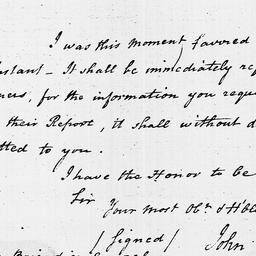 I was this moment favored
instant - It shall be immediately
for the information you
their Report, it shall without
to you.
I have the Honor to be
Sir
Your most Obt. & Hble
(Signed) John